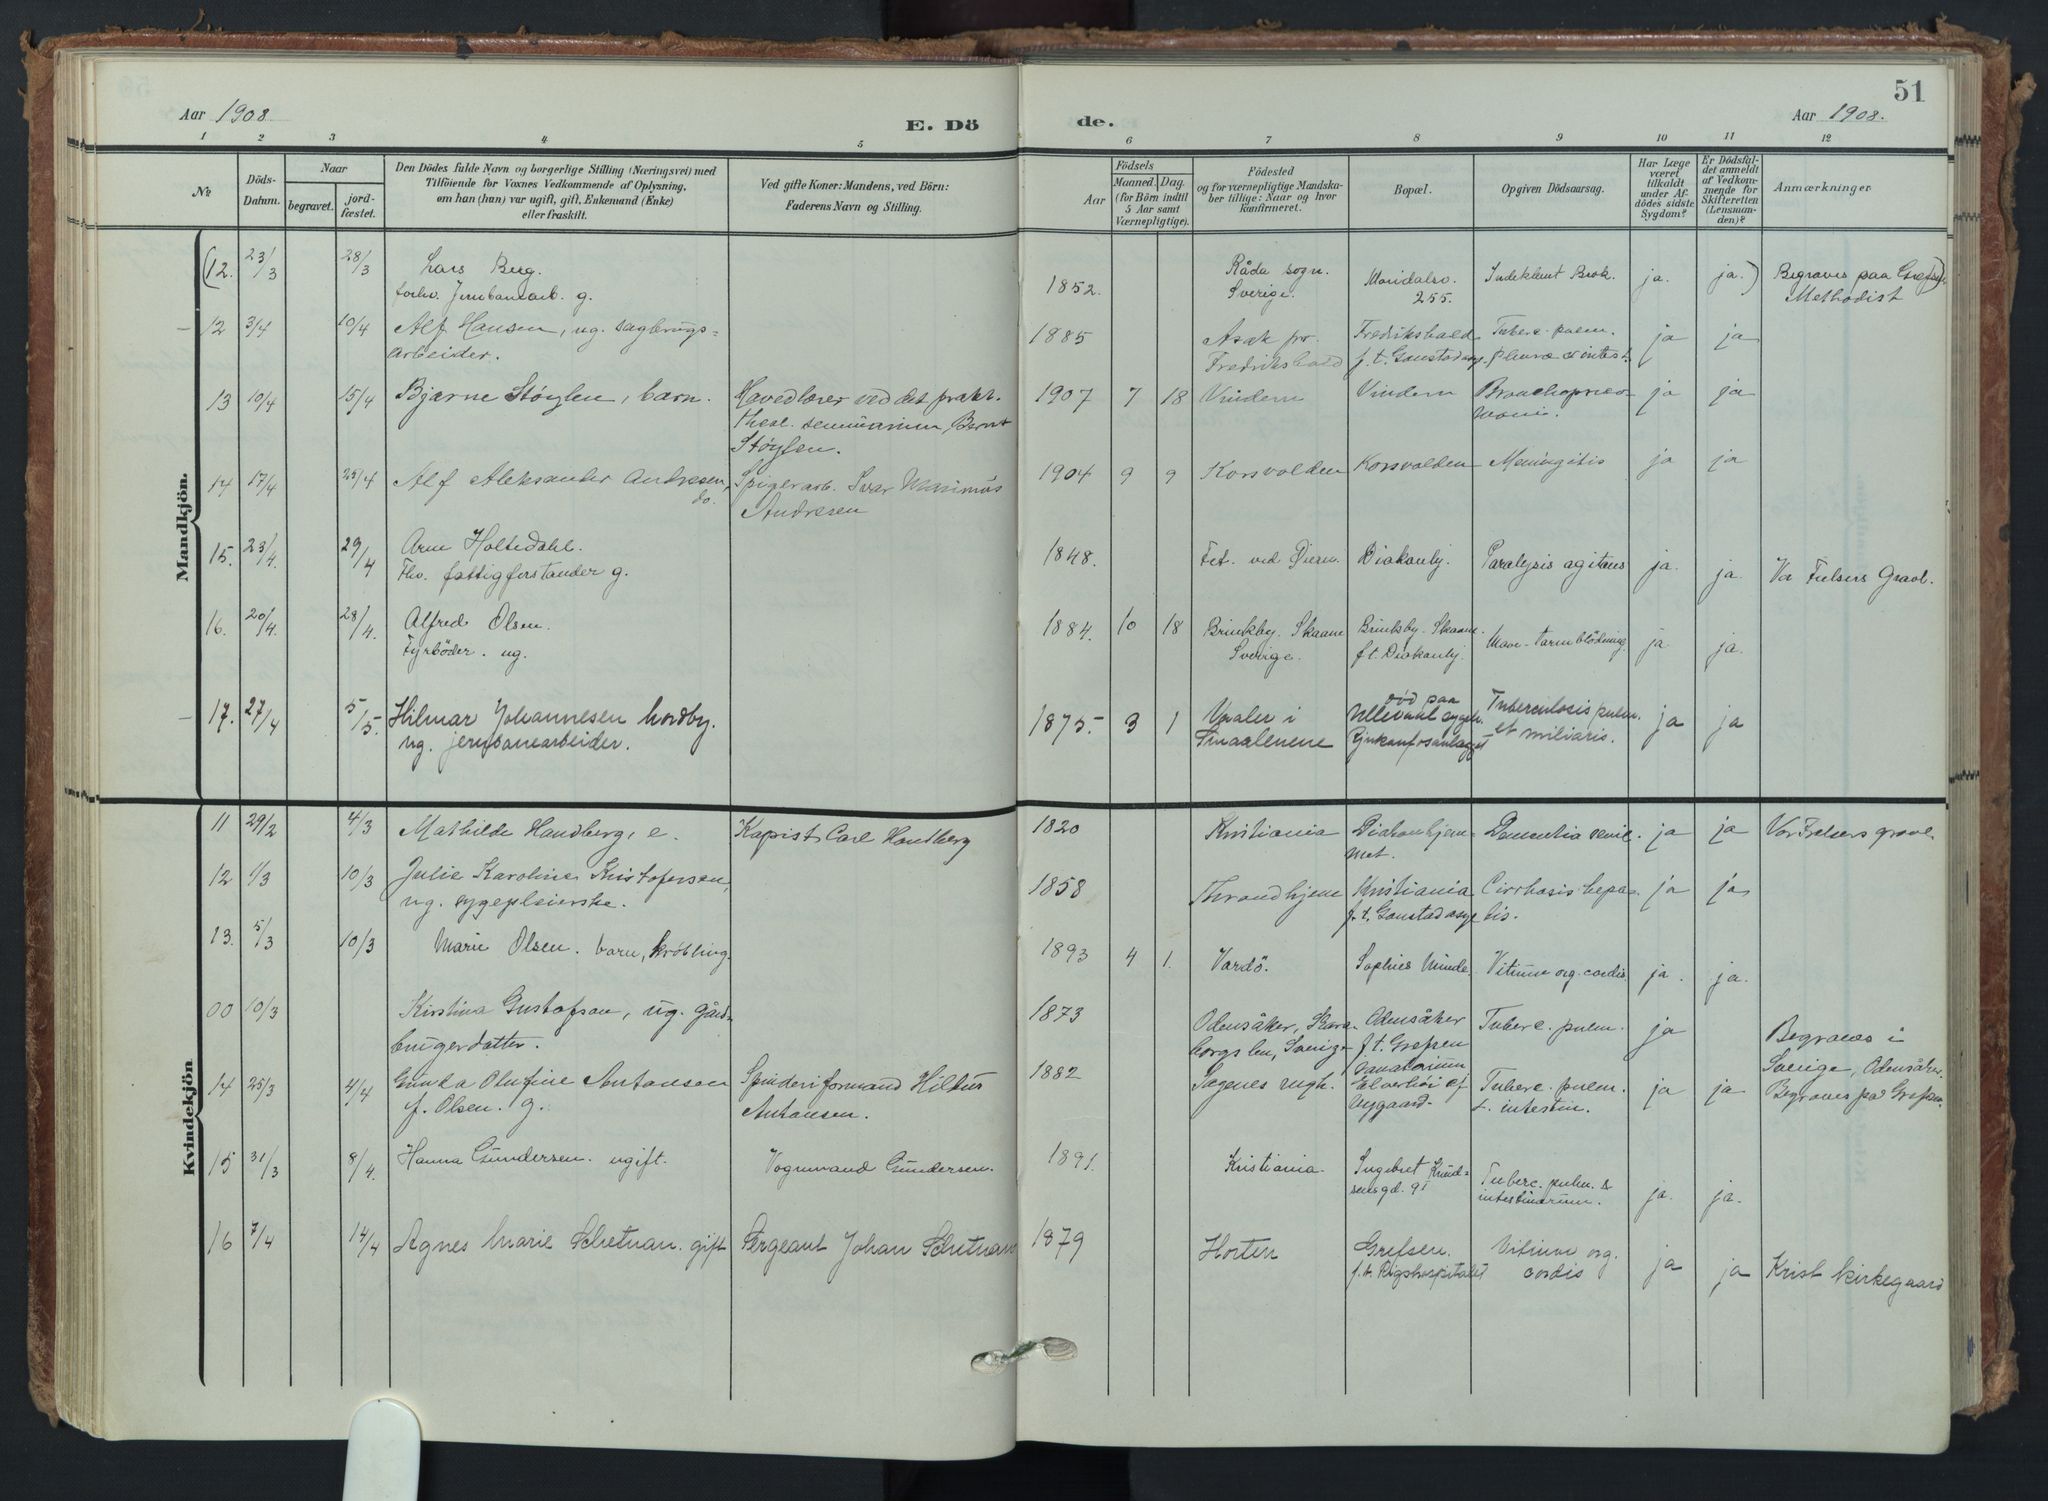 51
Aar 1908.
E. Dö
de.
Aar 1908.
1 2 3 4 5 6 7 8 9 10 11 12
№
Döds-
Datum.
Naar
begravet.
jord-
fæstet.
Den Dödes fulde Navn og borgerlige Stilling (Næringsvei) med
Tilföiende for Voxnes Vedkommende af Oplysning,
om han (hun) var ugift, gift, Enkemand (Enke)
eller fraskilt.
Ved gifte Koner: Mandens, ved Börn:
Faderens Navn og Stilling.
Födsels
Aar
Maaned. Dag.
(for Börn indtil
5 Aar samt
Værnepligtige).
Födested
og for værnepligtige Mandska-
ber tillige: Naar og hvor
konfirmeret.
Bopæl.
Opgiven Dödsaarsag.
Har Læge
været
tilkaldt
under Af-
dödes sidste
Sygdom?
Er Dödsfal-
det anmeldt
af Vedkom-
mende for
Skifteretten
(Lensman-
den)?
Anmærkninger
Mandkjön.
(12. 23/3 28/3 Lars Berg. 1852. Råda sogn. ja. ja.) Begraves paa Grefsen
forhv. Jernbanearb. g. Sverige. 255. Indeklemt Brok. Methodist
12 3/4 10/4 Alf Hansen, ug. sagbrugs= 1885 Asak pr. Fredrikshald Tuberc. pulm. ja ja
arbeider. Fredrikshald f. t. Gaustad asyl pleuræ & intest.
13 10/4 15/4 Bjarne Støylen, barn. Hovedlærer ved det prakt. 1907 7 18 Vindern Vindern Bronchopneu- ja ja
theol. seminarium, Bernt moni.
Støylen.
14 17/4 25/4 Alf Aleksander Andresen, Spigerarb. Ivar Marinius 1904 9 9 Korsvolden Korsvolden Meningitis ja ja
do. Andresen
15. 23/4. 29/4 Arne Holtedahl. 1848. Fet. ved Diakonhj. Paralysis agitans ja. ja. Vor Frelsers Gravl.
Fhv. fattigforstander g.
16. 20/4. 28/4. Alfred Olsen. 1884. 10 18 Brinkby. Skaane Brinkby. Skaane. Mave-tarmblödning. ja ja.
Fyrböder. ug. Sverige. f. t. Diakonhj.
17. 27/4 5/5. Hilmar Johannesen Nordby. 1875. 3 1 Vaaler i død paa Tuberculosis pulm. ja ja
ug. jernbanearbeider. Smaalenene Ullevaal sygeh. et miliaris.
Kvindekjön
11 29/2 4/3 Mathilde Handberg, e. Kopist Carl Handberg 1820 Kristiania Diakonhjem- Dementia senil. ja ja Vor Frelsers gravl.
met.
12 1/3 10/3 Julie Karoline Kristofersen, 1858 Throndhjem Kristiania Cirrhosis hepa- ja ja
ug. sygepleierske. f. t. Gaustad asyl tis.
13. 5/3 10/3 Marie Olsen. barn, krøbling. 1893 4 1. Vardö. Sophies Minde Vitium org. cordis ja. ja.
00 10/3 Kirstina Gustafson, ug. gård- 1873 Odensåker, Skara- Odensåker Tuberc. pulm. ja Begraves i
brugerdatter. borgs len, Sverige f. t. Grefsen Sverige, Odensåker.
sanatorium
14 25/3 4/4 Gunda Olufine Antonsen Spinderiformand Hilbur 1882 Sagenes mgh. Tuberc. pulm. ja ja Begraves på Grefsen
f. Olsen. g. Antonsen. & intestin.
15 31/3 8/4. Hanna Gundersen. ugift. Vognmand Gundersen. 1891. Kristiania. Ingebret Knud- Tuberc. pulm. &
sensgd. 91 intestinarum. ja. ja.
16 7/4 14/4 Agnes Marie Schetnan. gift Sergeant Johan Schetnan 1879 Horten Grefsen. Vitium org. ja ja Krist kirkegaard
f. t. Rigshospitalet cordis